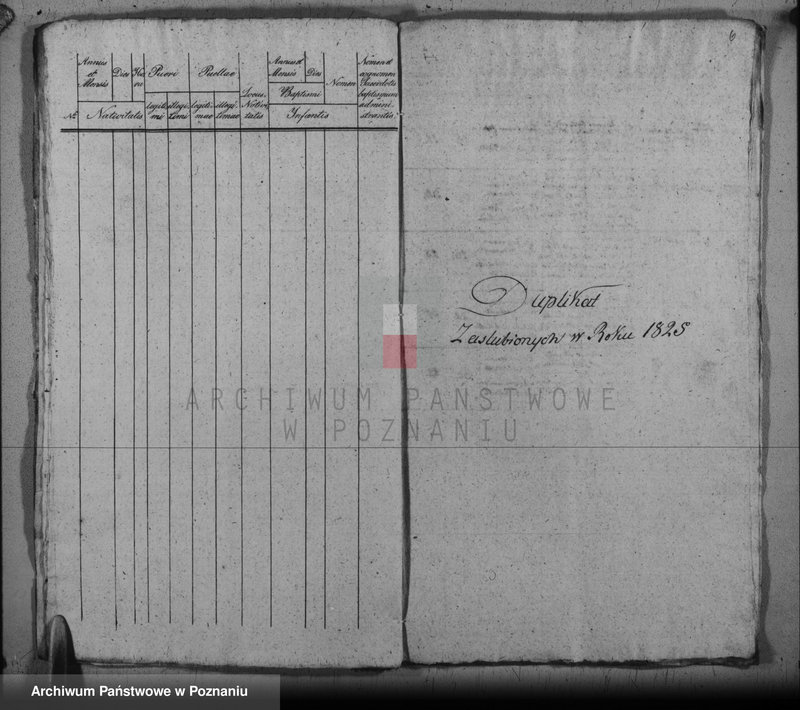 6
Annus et Mensis
Dies
Hora
Pueri
Puellae
Annus et Mensis
Dies
Nomen
Nomen et cognomen Sacerdotis baptismum administrantis
Locus Nativitatis
Baptismi
legitimi
illegitimi
legitimae
illegitimae
No
Nativitatis
Infantis
Duplikat
Zaslubionych w Roku 1825
ARCHIWUM PAŃSTWOWE
W POZNANIU
Archiwum Państwowe w Poznaniu